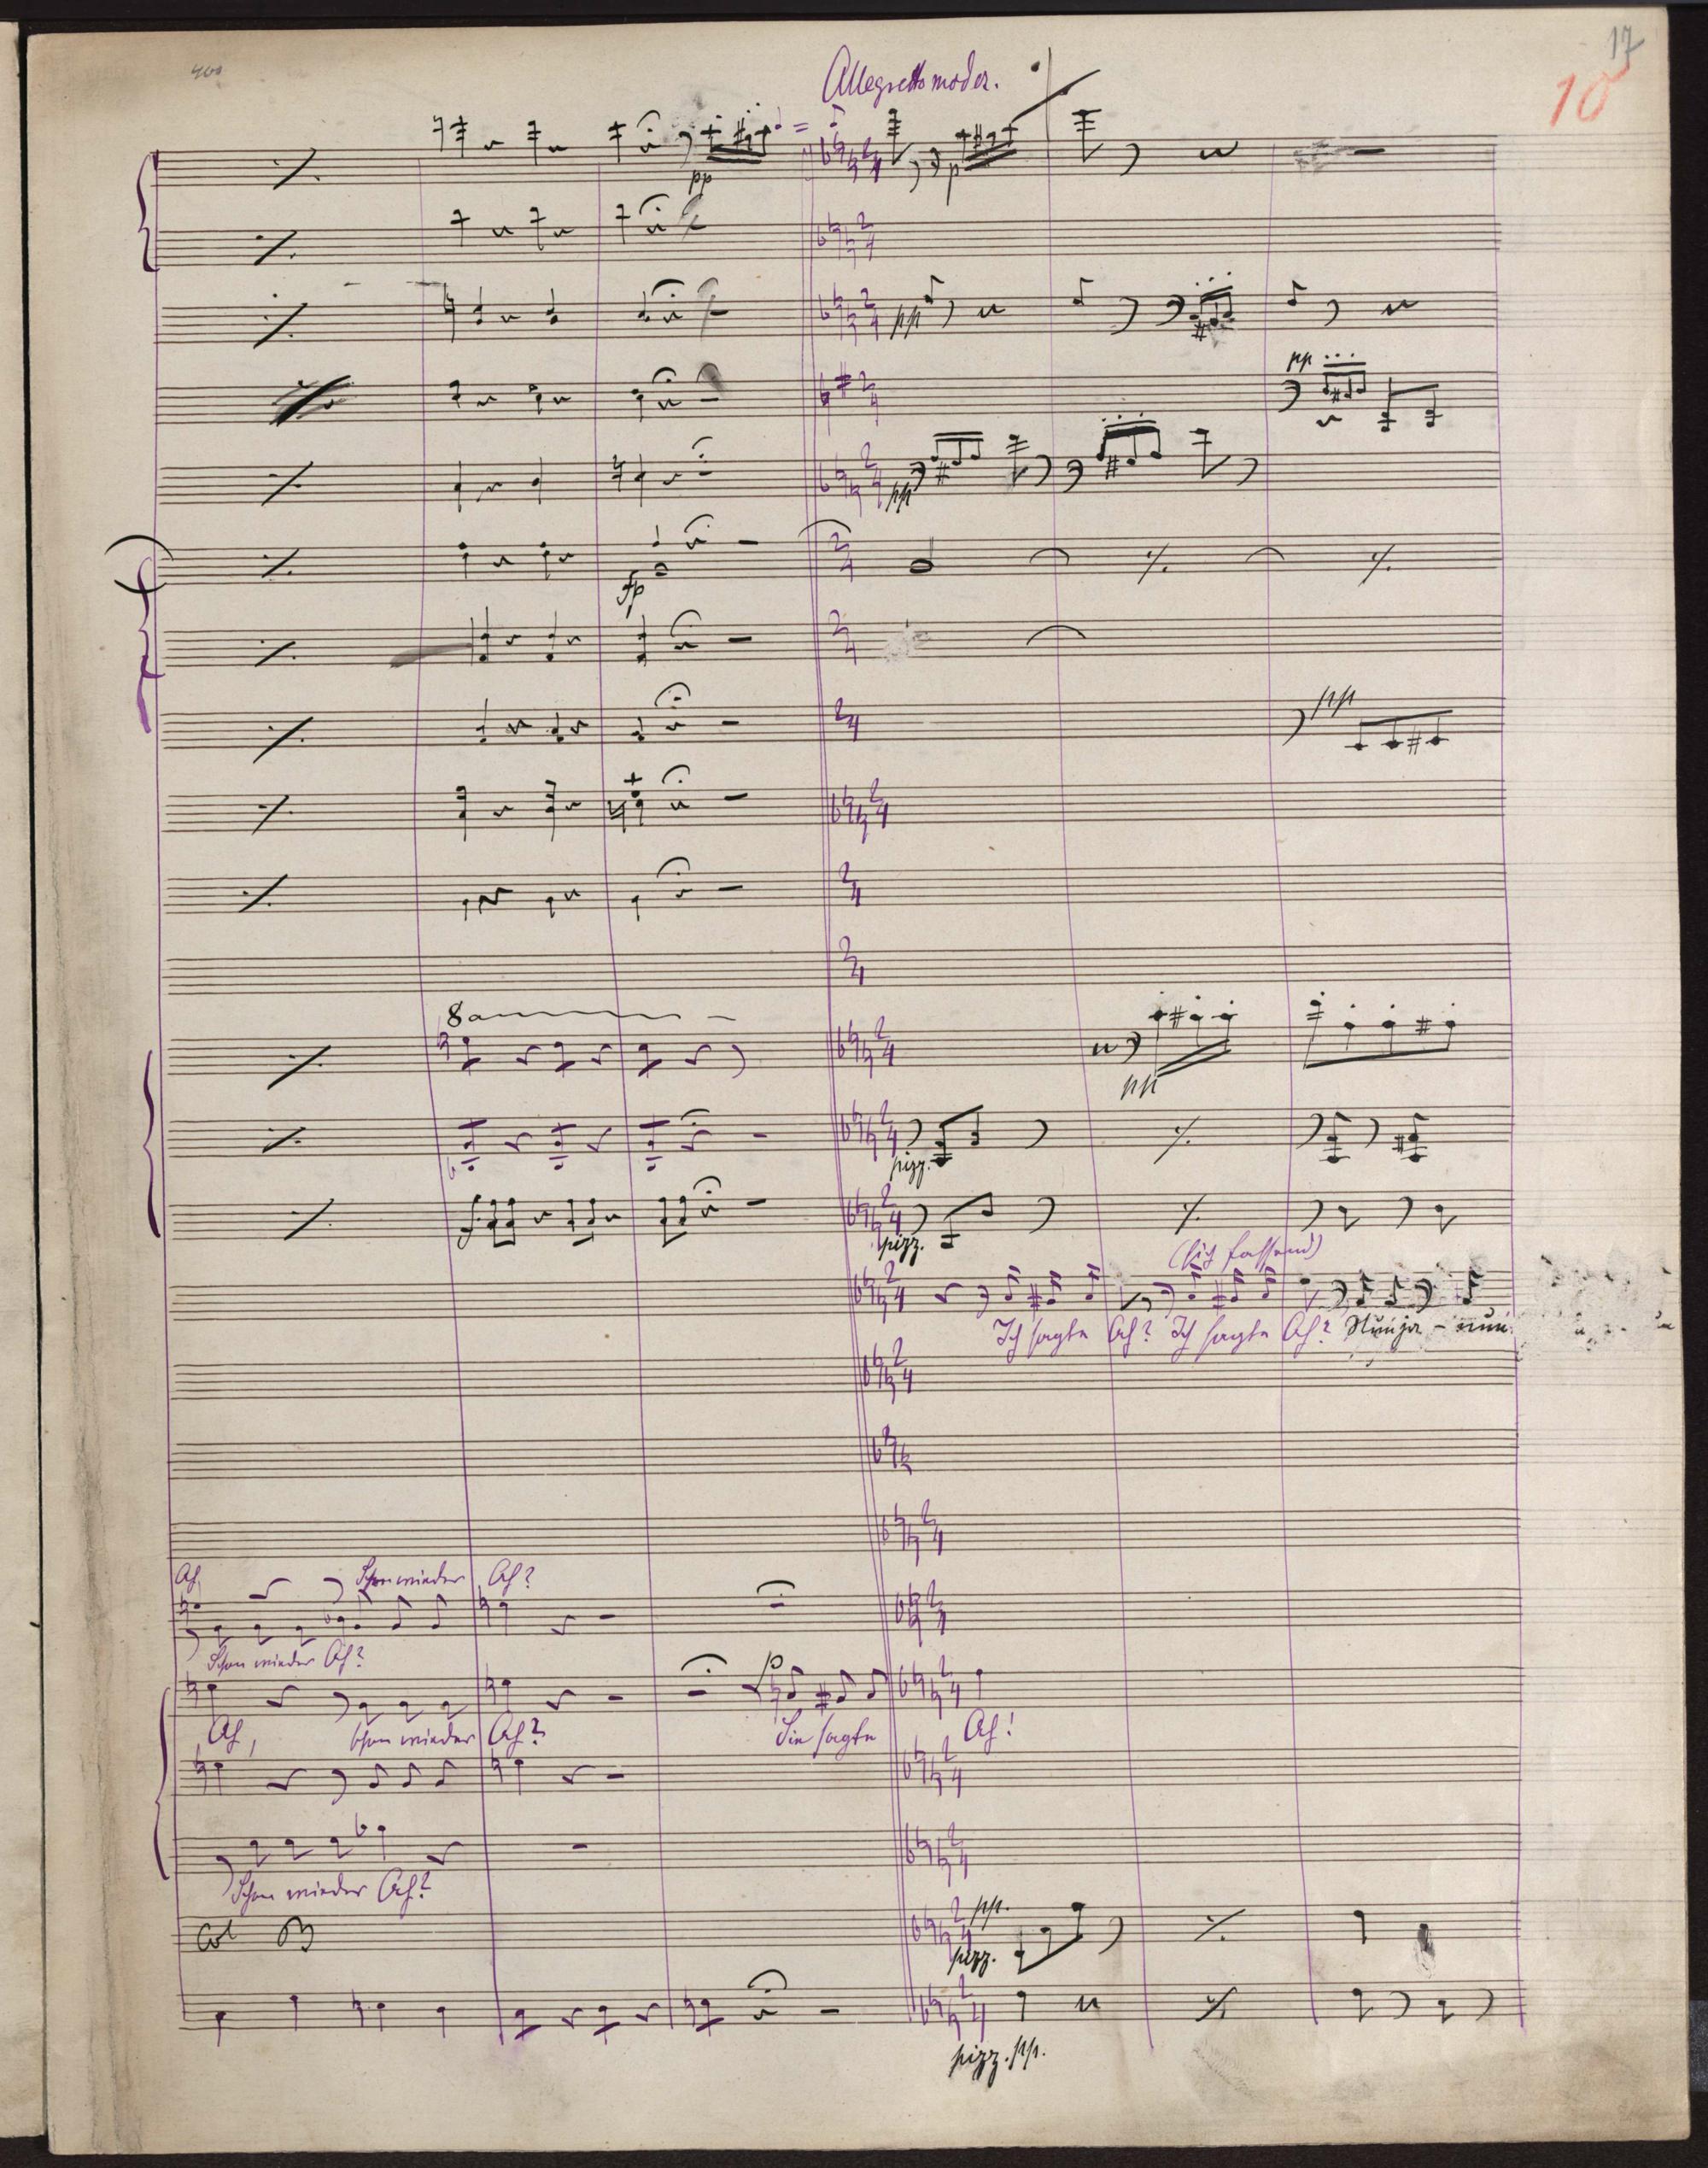 17
10
Allegretto moder.
pp
p
pp
pp
pp
fp
pp
8a
pp
pizz.
pizz.
(sich fassend)
Ich sagte Ach? Ich sagte Ach? Nun ja - nun
Ach, Schon wieder Ach?
Schon wieder Ach?
p
Ach, schon wieder Ach? Sie sagte Ach!
Schon wieder Ach?
Col B
pp.
pizz.
pizz. pp.